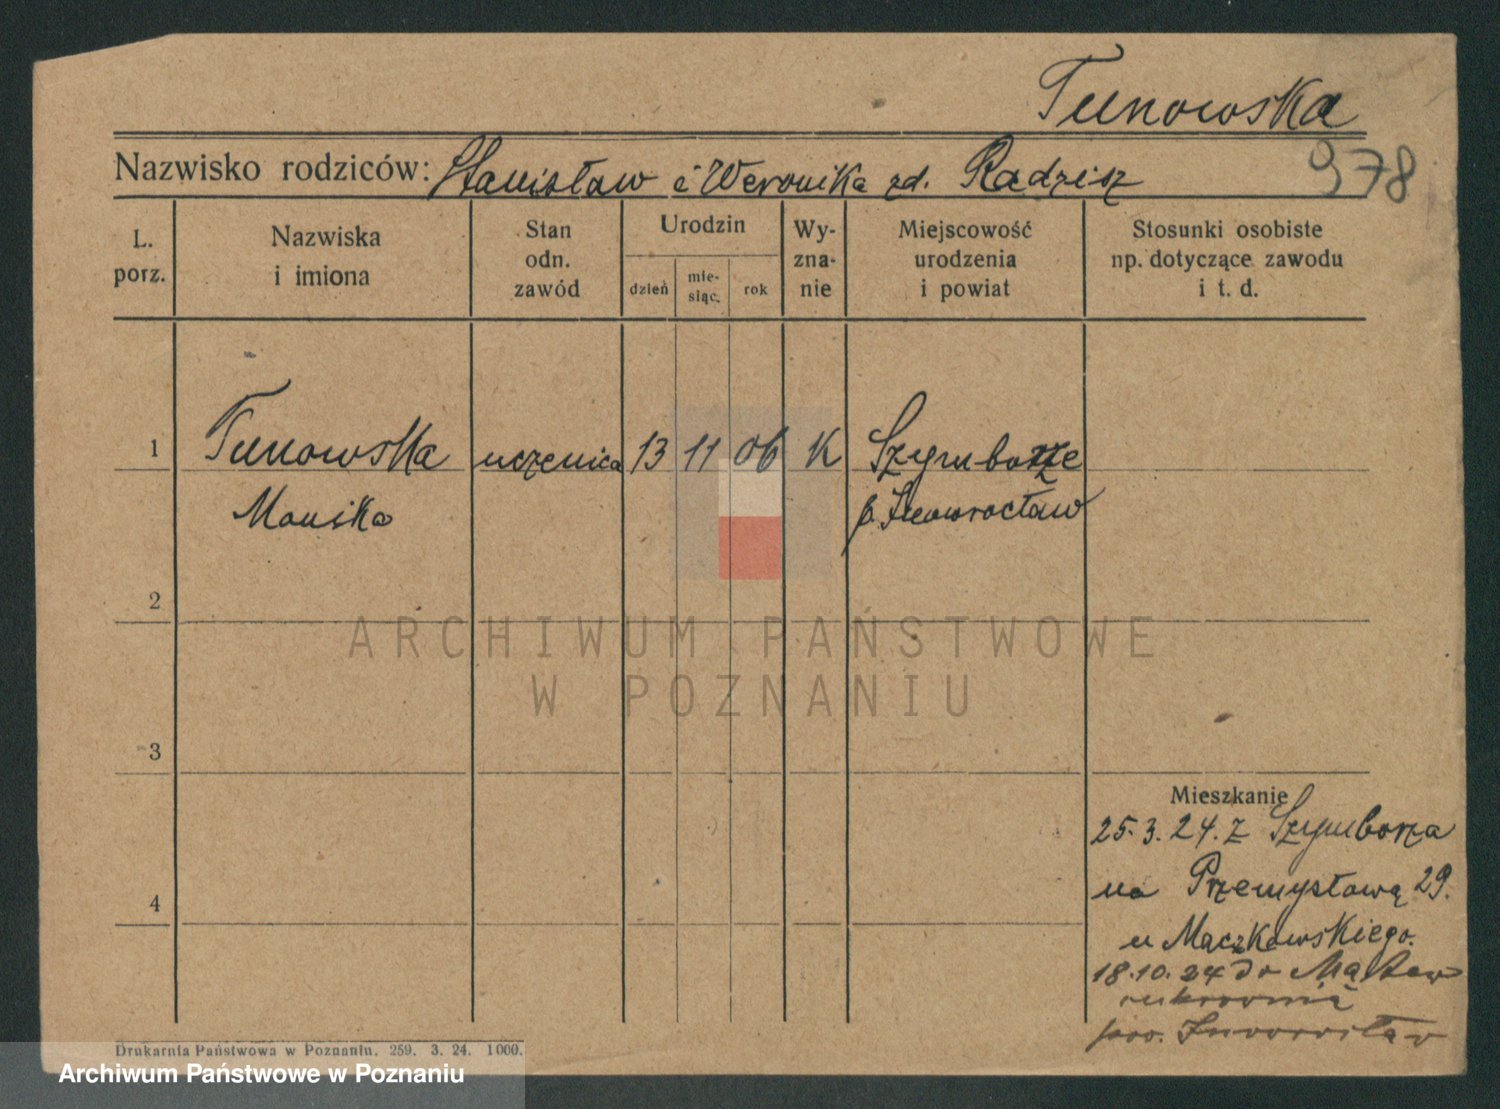 Tunowska
Nazwisko rodziców: Stanisław i Weronika zd. Radzisz
978
L. porz.
Nazwiska i imiona
Stan odn. zawód
Urodzin
dzień
mie-siąc.
rok
Wy-zna-nie
Miejscowość urodzenia i powiat
Stosunki osobiste np. dotyczące zawodu i t. d.
1 Tunowska uczenica 13 11 06 K Szymborze
Monika p. Inowrocław
2
3
4
ARCHIWUM PAŃSTWOWE
W POZNANIU
Mieszkanie
25.3.24. z Szymborza
na Przemysłową 29.
u Mączkowskiego.
18.10.24 do Mątew
cukrownia
pow. Inowrocław
Drukarnia Państwowa w Poznaniu. 259. 3. 24. 1000.
Archiwum Państwowe w Poznaniu